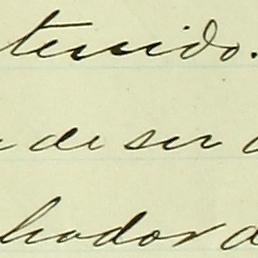 temido.
de ser
hador d